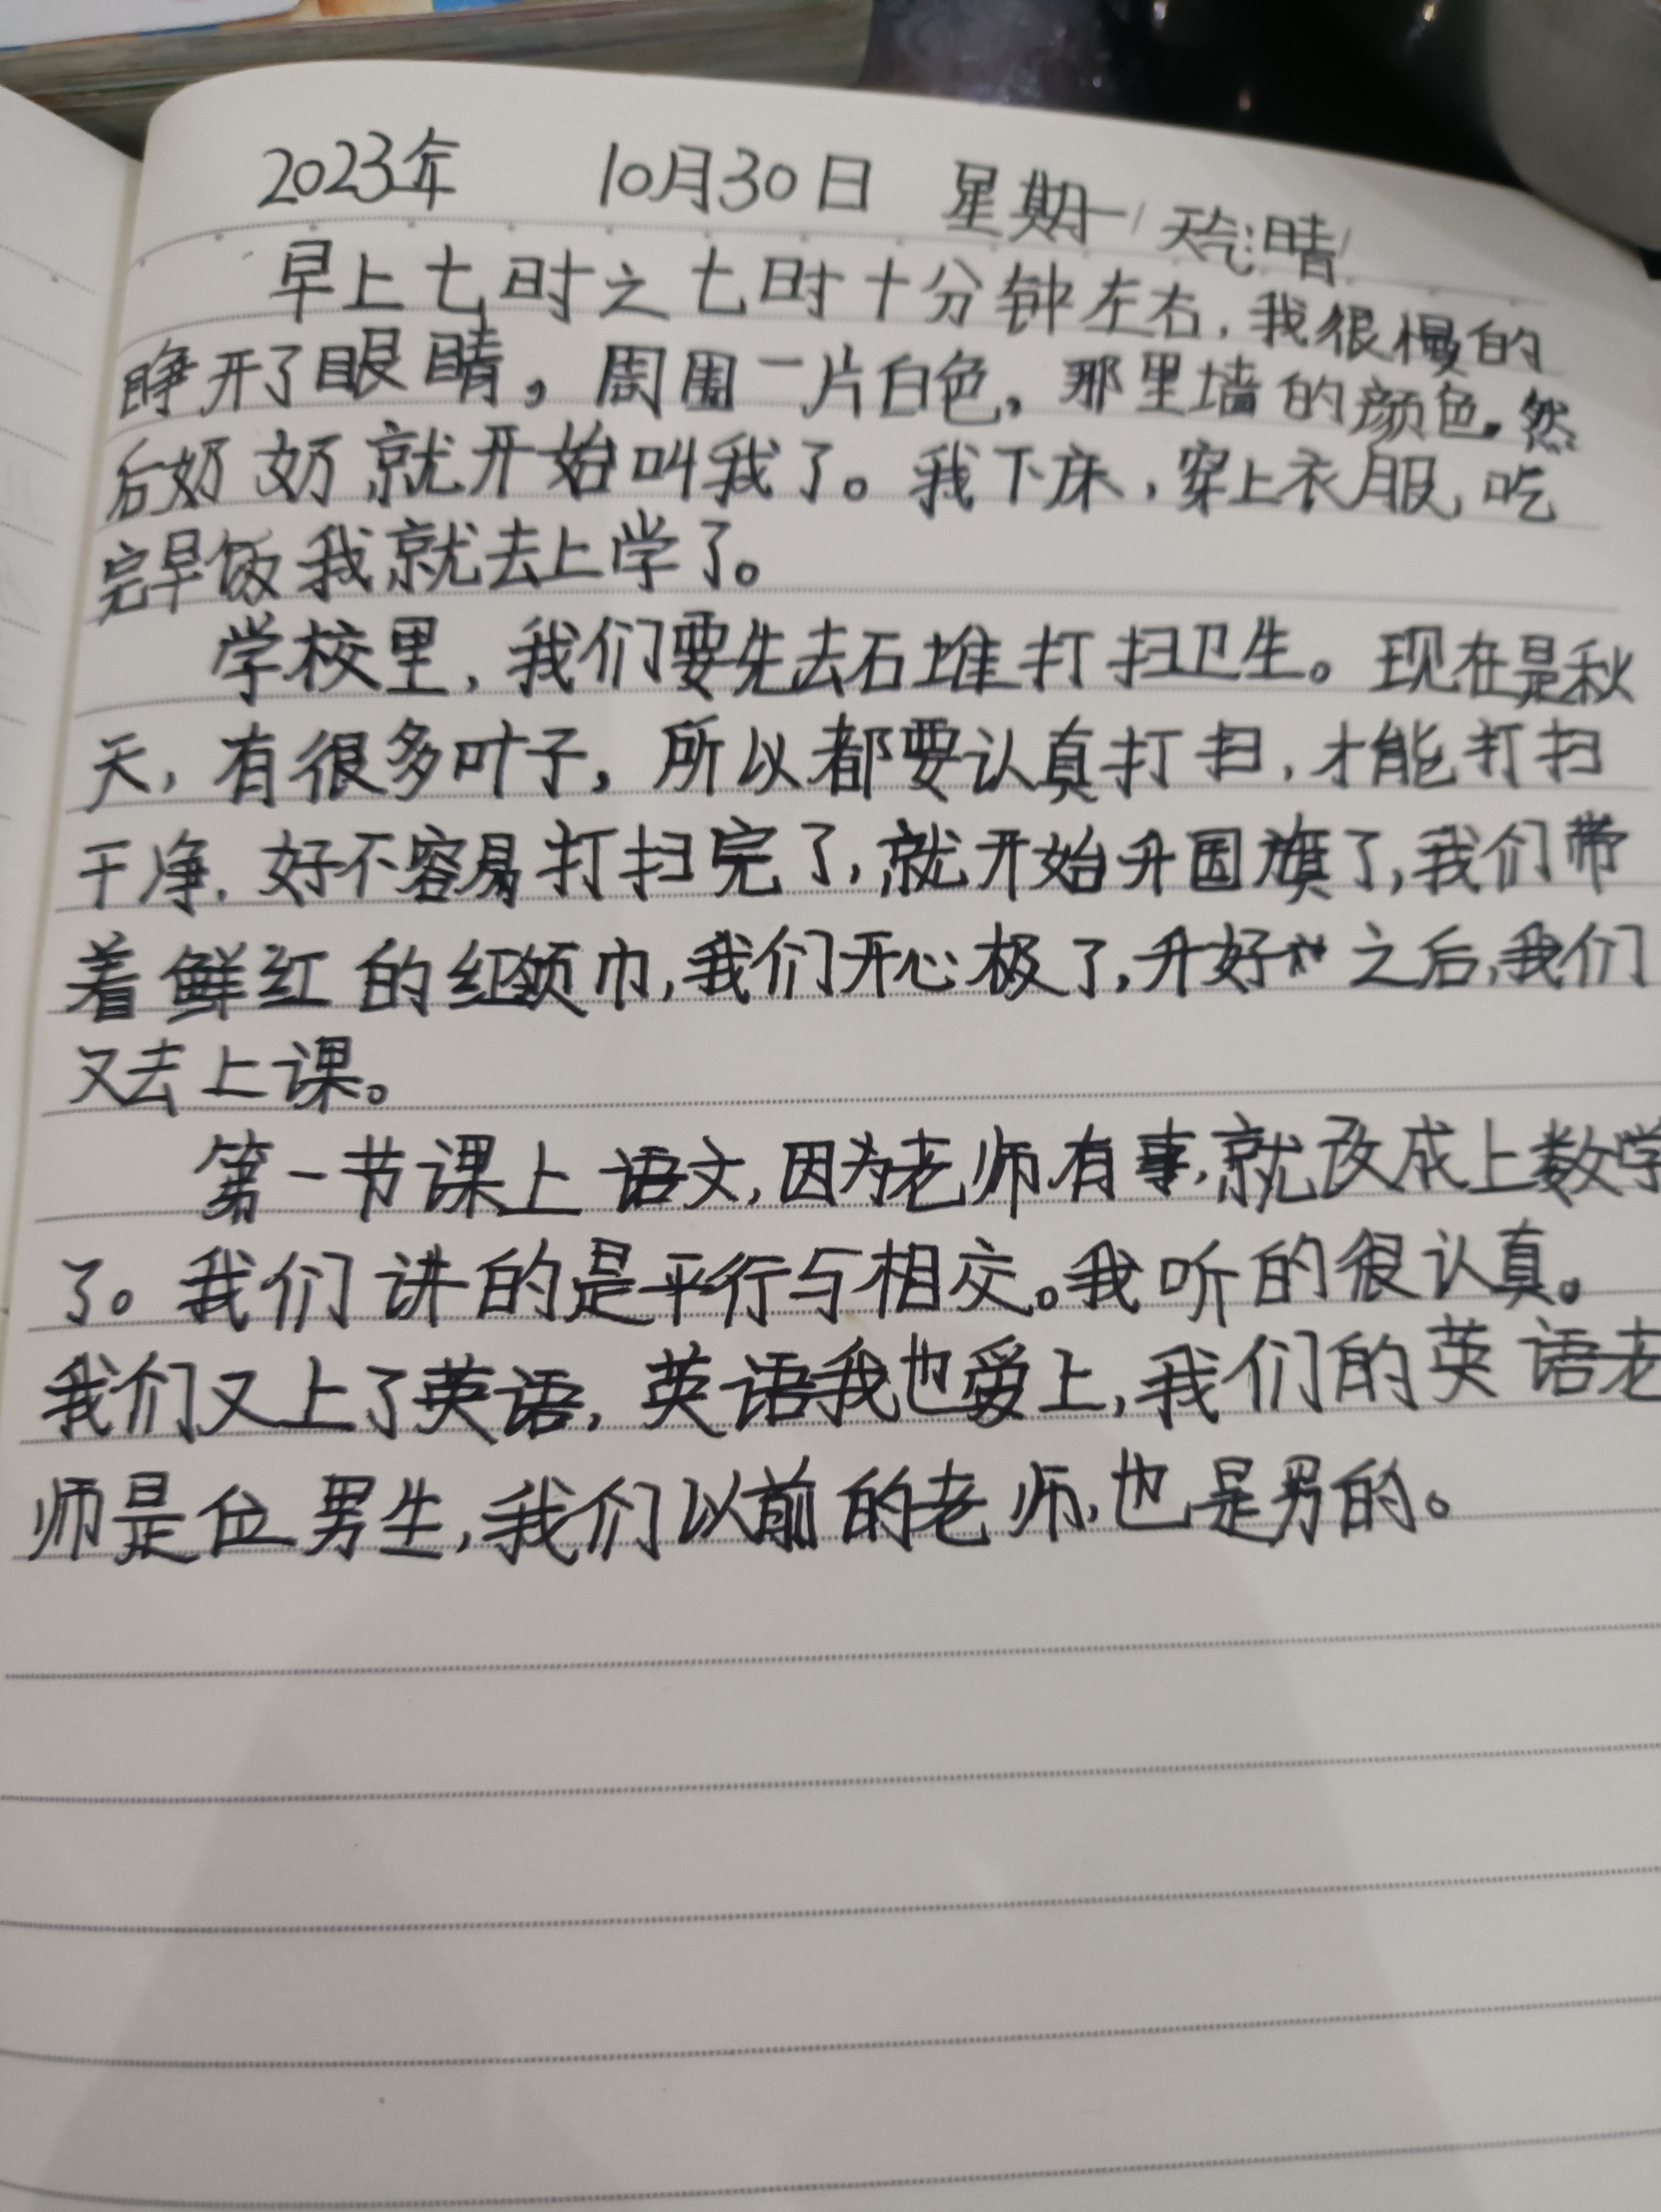 2023年 10月30日 星期一 天气:晴
早上七时之七时十分钟左右,我很慢的
睁开了眼睛,周围一片白色,那里墙的颜色。然
后奶奶就开始叫我了。我下床,穿上衣服,吃
完早饭我就去上学了。
学校里,我们要先去石堆打扫卫生。现在是秋
天,有很多叶子,所以都要认真打扫,才能打扫
干净.好不容易打扫完了,就开始升国旗了,我们带
着鲜红的红领巾,我们开心极了,升好之后,我们
又去上课。
第一节课上语文,因为老师有事,就改成上数学
了。我们讲的是平行与相交。我听的很认真。
我们又上了英语,英语我也爱上,我们的英语老
师是位男生,我们以前的老师,也是男的。